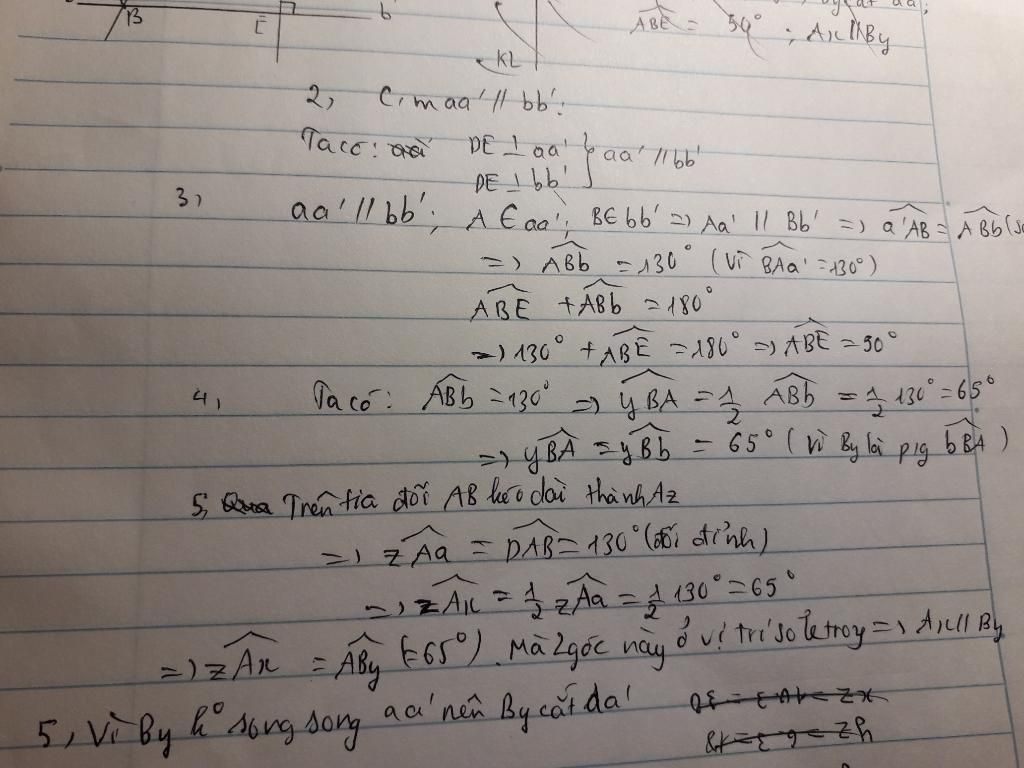 B E b'
KL
ABE = 50° ; Ax // By
2, C, m aa' // bb':
Ta có: DE ⊥ aa' } aa' // bb'
DE ⊥ bb'
3, aa' // bb'; A ∈ aa'; B ∈ bb' => Aa' // Bb' => a'AB = ABb
=> ABb = 130° (Vì BAa' = 130°)
ABE + ABb = 180°
=> 130° + ABE = 180° => ABE = 50°
4, Ta có: ABb = 130° => yBA = 1/2 ABb = 1/2 130° = 65°
=> yBA = yBb = 65° (Vì By là p/g bBA)
5, Trên tia đối AB kéo dài thành Az
=> zAa = DAB = 130° (đối đỉnh)
=> zAx = 1/2 zAa = 1/2 130° = 65°
=> zAx = ABy (= 65°). Mà 2 góc này ở vị trí so le troy => Ax // By
5, Vì By k° song song aa' nên By cắt da'